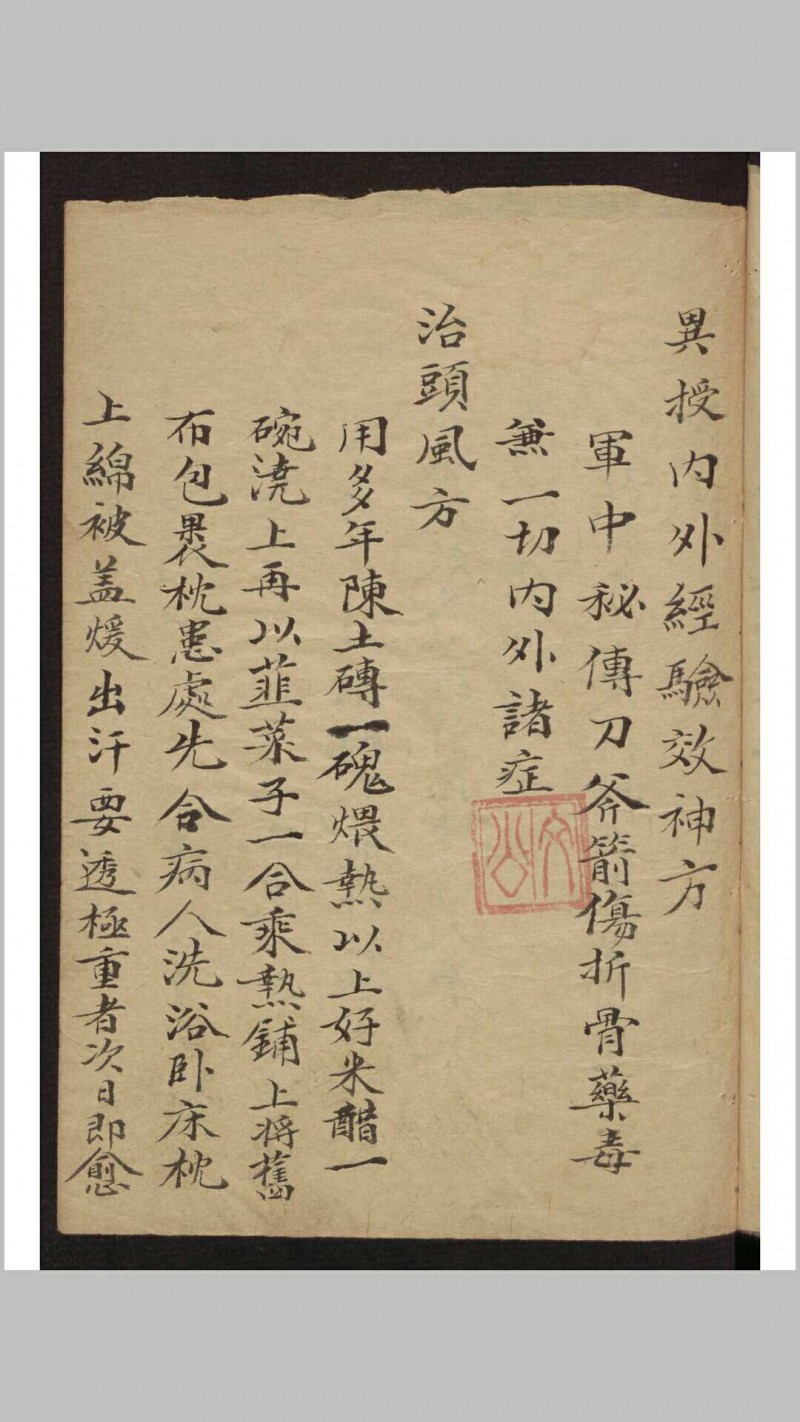 異授內外經驗效神方
軍中秘傳刀斧箭傷折骨藥毒
兼一切內外諸症
治頭風方
用多年陳土磚一磈煨熱以上好米醋一
碗澆上再以韮菜子一合乘熱鋪上將舊
布包裹枕患處先令病人洗浴卧床枕
上綿被盖煖出汗要透極重者次日即愈